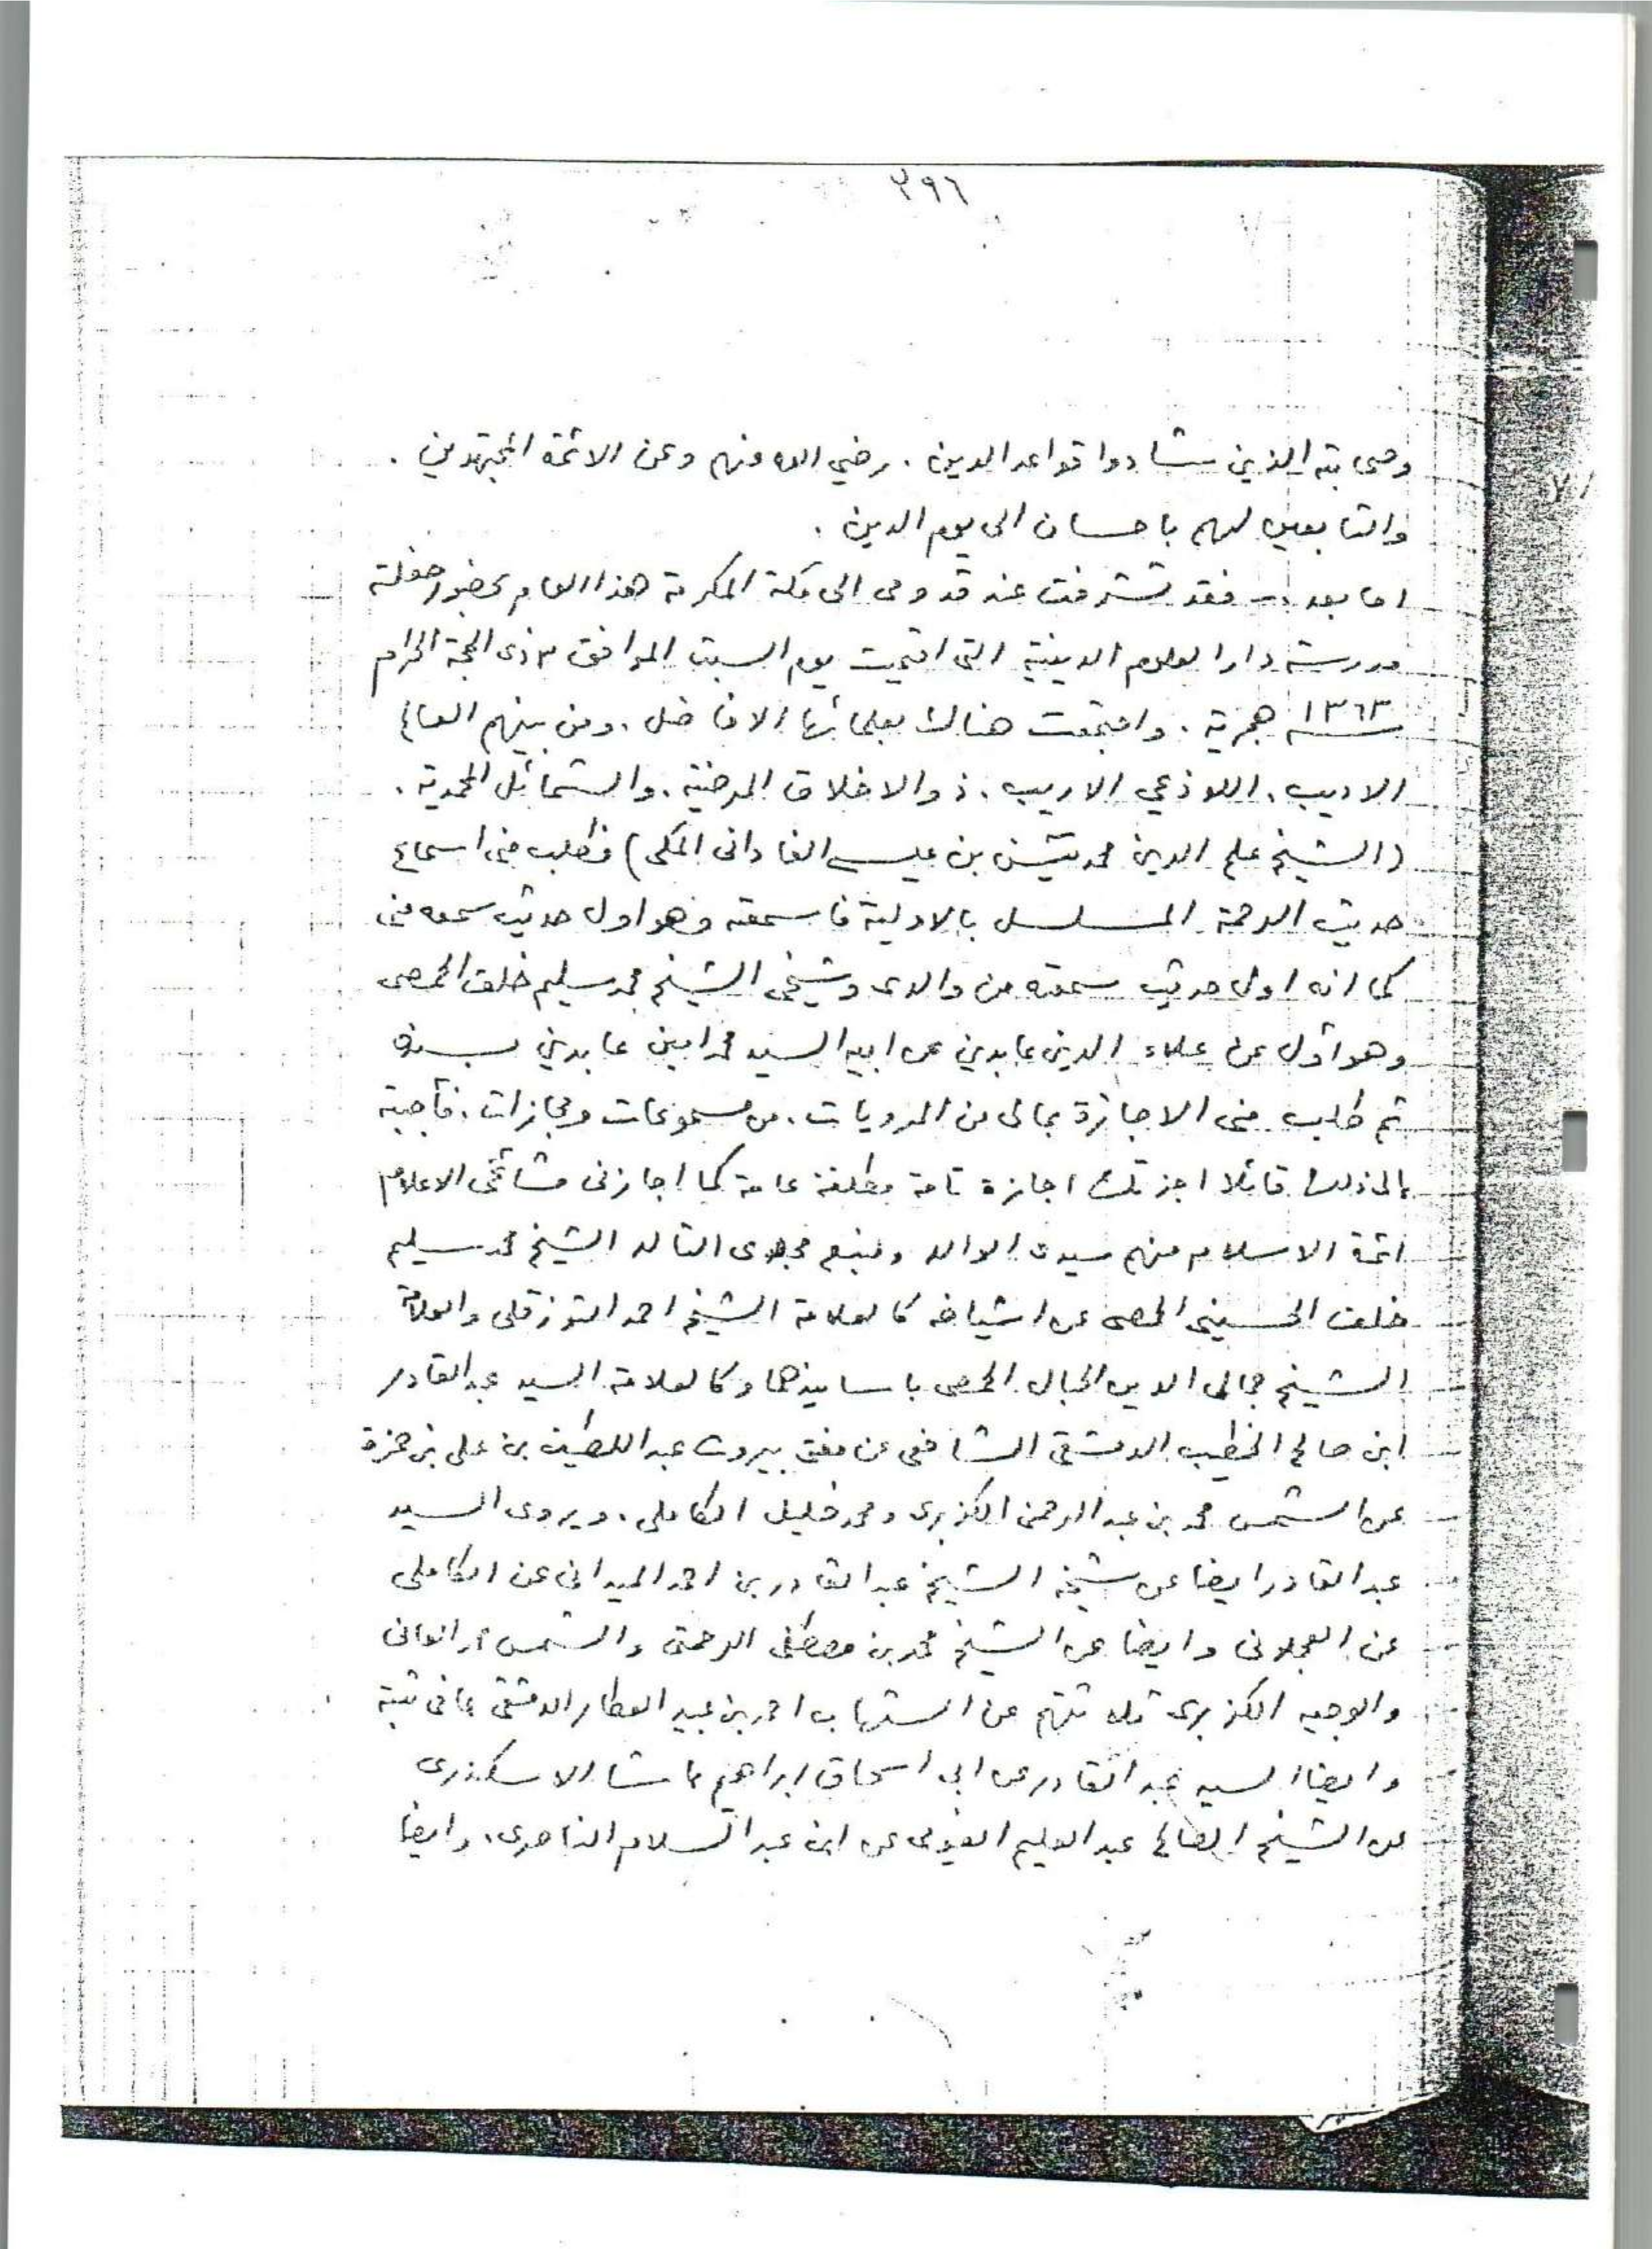 ٣٩٦
وصحابته الذين شادوا قواعد الدين . رضي الله عنهم وعن الائمة المجتهدين .
والتابعين لهم باحسان الى يوم الدين .
اما بعد .. فقد تشرفت عند قدومى الى مكة المكرمة هذا العام بحضور حفلة
مدرسة دار العلوم الدينية التى اقيمت يوم السبت الموافق ٣ ذى الحجة الحرام
١٣٦٣ هجرية . واجتمعت هناك بعلمائها الافاضل . ومن بينهم العالم
الاديب . اللاذعي الاريب . ذو الاخلاق المرضية . والشمائل المحمدية .
(الشيخ علم الدين محمد يٰسن بن عيسى الفادانى المكى) فطلب منى اسماع
حديث الرحمة المسلسل بالاولية فاسمعته وهو اول حديث سمعه منى
كما انه اول حديث سمعته من والدى وشيخى الشيخ محمد سليم خلف الحمصى
وهو اول عن علاء الدين عابدين عن ابيه السيد محمد امين عابدين بسنده
ثم طلب منى الاجازة بمالى من المرويات . من مسموعات ومجازات . فأجبته
الى ذلك قائلا اجزتك اجازة تامة مطلقة عامة كما اجازنى مشائخى الاعلام
ائمة الاسلام منهم سيدى الوالد ومنبع مجدى التالد الشيخ محمد سليم
خلف الحسينى الحمصى عن اشياخه كالعلامة الشيخ احمد التوزقلى والعلامة
الشيخ جمالى الدين الجبال الحمصى باسانيدهما وكالعلامة السيد عبد القادر
ابن صالح الخطيب الدمشقى الشافعى عن مفتى بيروت عبد اللطيف بن على بن حمزة
عن الشمس محمد بن عبد الرحمن الكزبرى ومحمد خليل الكاملى . ويروى السيد
عبد القادر ايضا عن شيخه الشيخ عبد القادر بن احمد الميدانى عن الكاملى
عن العجلونى وايضا عن الشيخ محمد بن مصطفى الرحمتى والشمس
والوجيه الكزبرى ثلاثتهم عن الشهاب احمد بن عبيد العطار الدمشقى مافى ثبته
وايضا السيد عبد القادر عن ابى اسحاق ابراهيم باشا الاسكندرى
عن الشيخ الصالح عبد العليم الفيومى عن ابن عبد السلام الناصرى . وايضا